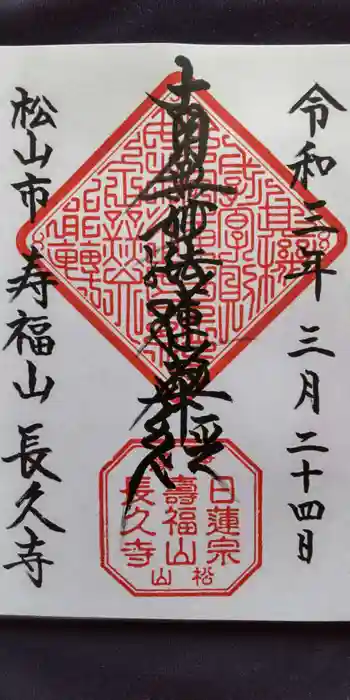 令和三年 三月二十四日
南無妙法蓮華経
松山市 寿福山 長久寺
日蓮宗
壽福山
長久寺
松山